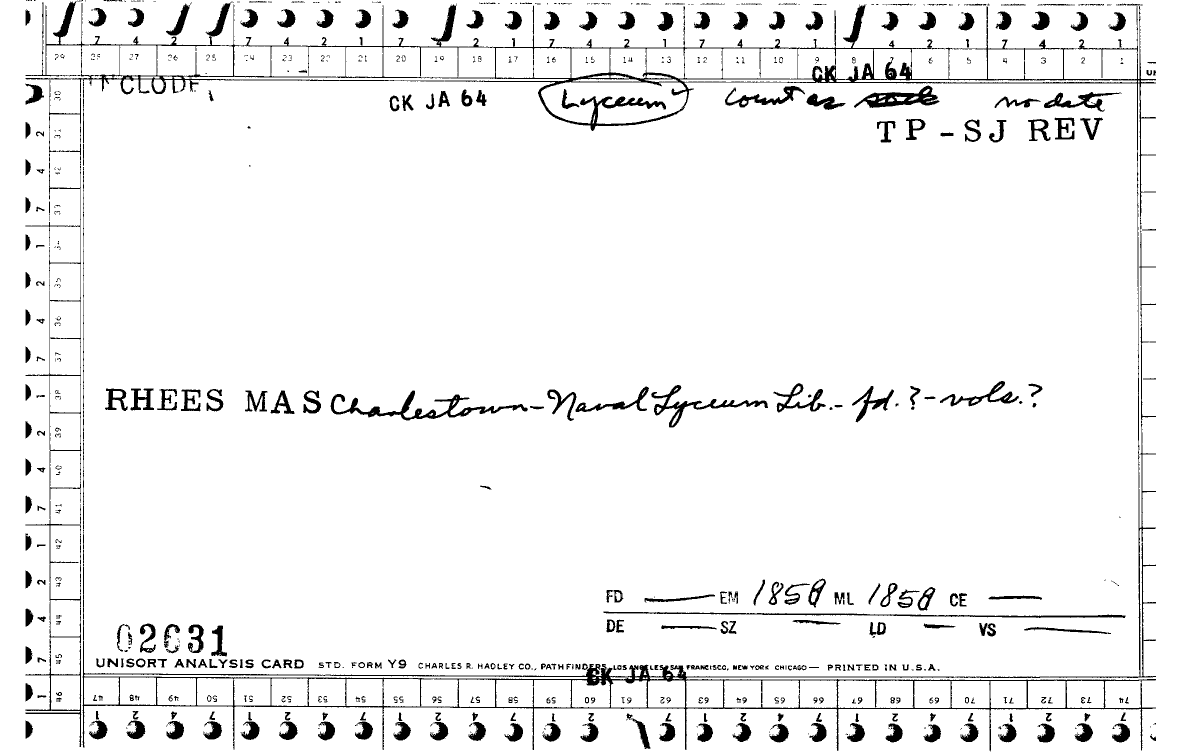 7 4 2 1 7 4 2 1 7 4 2 1 7 4 2 1 7 4 2 1 7 4 2 1 7 4 2 1
29 28 27 26 25 24 23 22 21 20 19 18 17 16 15 14 13 12 11 10 9 8 7 6 5 4 3 2 1
CK JA 64
INCLODE
CK JA 64 Lyceum count as no date
TP-SJ REV
RHEES MAS Charlestown-Naval Lyceum Lib.- fd.?-vols.?
FD — EM 1850 ML 1850 CE —
DE — SZ — LD — VS —
02631
UNISORT ANALYSIS CARD STD. FORM Y9 CHARLES R. HADLEY CO., PATHFINDERS, LOS ANGELES, SAN FRANCISCO, NEW YORK CHICAGO — PRINTED IN U.S.A.
CK JA 64
47 48 49 50 51 52 53 54 55 56 57 58 59 60 61 62 63 64 65 66 67 68 69 70 71 72 73 74
1 2 4 7 1 2 4 7 1 2 4 7 1 2 4 7 1 2 4 7 1 2 4 7 1 2 4 7